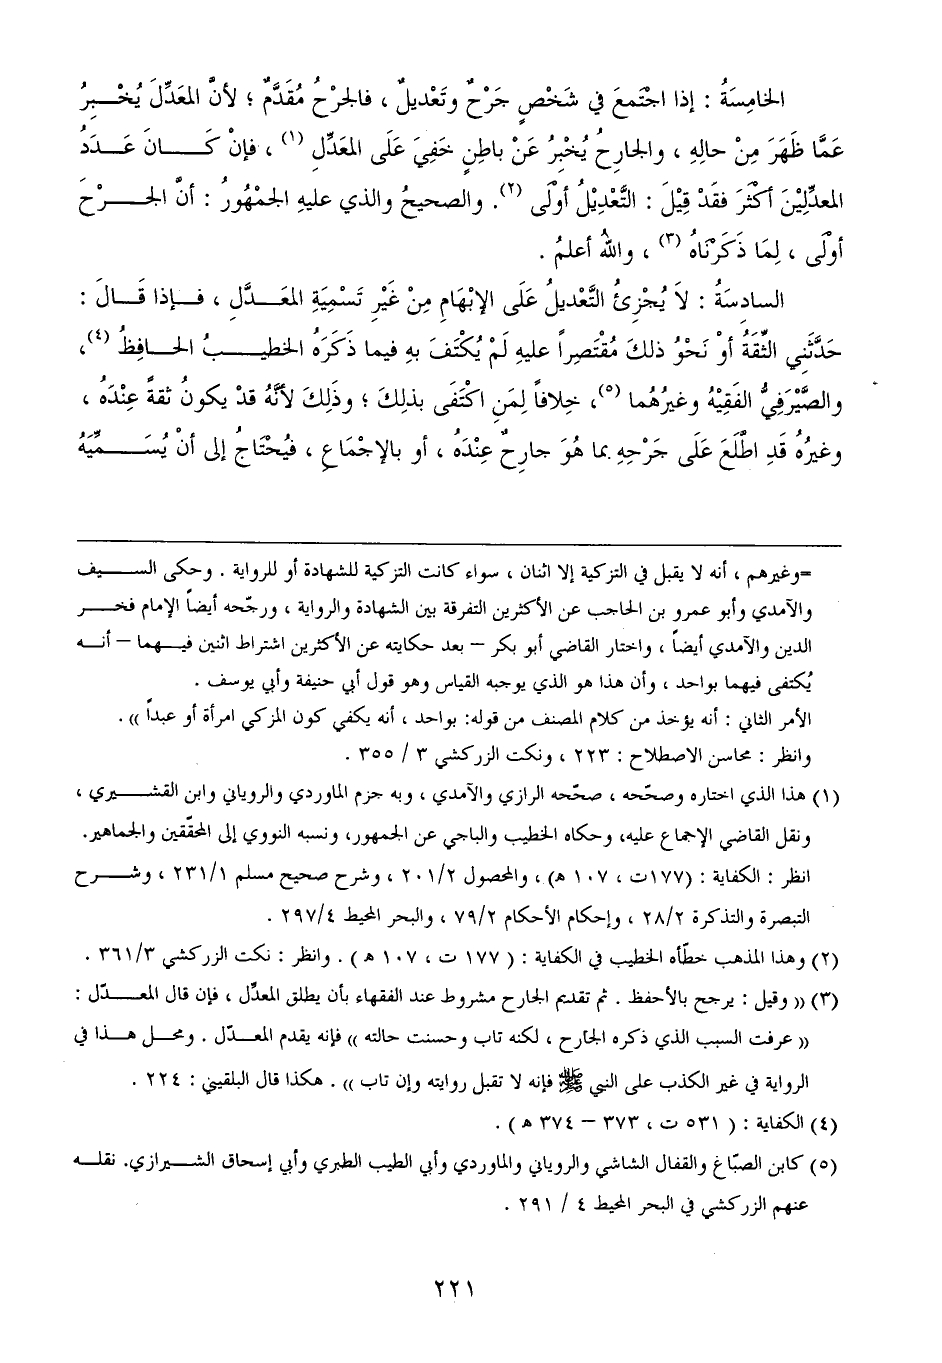 الخامِسَةُ : إذا اجْتَمعَ في شَخْصٍ جَرْحٌ وتَعْديلٌ ، فالجَرْحُ مُقَدَّمٌ ؛ لأنَّ المعَدِّلَ يُخْبِرُ
عَمَّا ظَهَرَ مِنْ حالِهِ ، والجارِحُ يُخْبِرُ عَنْ باطنٍ خَفِيَ عَلَى المعَدِّلِ (١) ، فإنْ كَانَ عَدَدُ
المعدِّلِيْنَ أكْثَرَ فقَدْ قِيْلَ : التَّعْدِيْلُ أوْلَى (٢). والصحيحُ والذي عليهِ الجمْهُورُ : أنَّ الجَرْحَ
أوْلَى ، لِمَا ذَكَرْنَاهُ (٣) ، واللهُ أعلمُ .
السادسَةُ : لاَ يُجْزِئُ التَّعْديلُ عَلَى الإبْهَامِ مِنْ غَيْرِ تَسْمِيَةِ المعَدَّلِ ، فإذا قَالَ :
حَدَّثَني الثِّقَةُ أوْ نَحْوُ ذلكَ مُقْتَصِراً عليهِ لَمْ يُكْتَفَ بهِ فيما ذكَرَهُ الخطيبُ الحافِظُ (٤)،
والصَّيْرَفِيُّ الفَقِيْهُ وغيرُهُما (٥)، خِلافاً لِمَن اكْتَفَى بذلكَ ؛ وذَلِكَ لأنَّهُ قدْ يكونُ ثقةً عِنْدَهُ ،
وغيرُهُ قَدِ اطَّلَعَ عَلَى جَرْحِهِ بما هُوَ جارِحٌ عِنْدَهُ ، أو بالإجْماعِ ، فيُحْتَاجُ إلى أنْ يُسَمِّيَهُ
=وغيرهم ، أنه لا يقبل في التزكية إلا اثنان ، سواء كانت التزكية للشهادة أو للرواية . وحكى السيف
والآمدي وأبو عمرو بن الحاجب عن الأكثرين التفرقة بين الشهادة والرواية ، ورجّحه أيضاً الإمام فخر
الدين والآمدي أيضاً ، واختار القاضي أبو بكر – بعد حكايته عن الأكثرين اشتراط اثنين فيهما – أنه
يُكتفى فيهما بواحد ، وأن هذا هو الذي يوجبه القياس وهو قول أبي حنيفة وأبي يوسف .
الأمر الثاني : أنه يؤخذ من كلام المصنف من قوله: بواحد ، أنه يكفي كون المزكي امرأة أو عبداً )) .
وانظر : محاسن الاصطلاح : ٢٢٣ ، ونكت الزركشي ٣ / ٣٥٥ .
(١) هذا الذي اختاره وصحّحه ، صحّحه الرازي والآمدي ، وبه جزم الماوردي والروياني وابن القشيري ،
ونقل القاضي الإجماع عليه، وحكاه الخطيب والباجي عن الجمهور، ونسبه النووي إلى المحقّقين والجماهير.
انظر : الكفاية : (١٧٧ت ، ١٠٧ ه) ، والمحصول ٢٠١/٢ ، وشرح صحيح مسلم ٢٣١/١ ، وشرح
التبصرة والتذكرة ٢٨/٢ ، وإحكام الأحكام ٧٩/٢ ، والبحر المحيط ٢٩٧/٤ .
(٢) وهذا المذهب خطّأه الخطيب في الكفاية : ( ١٧٧ ت ، ١٠٧ ه ) . وانظر : نكت الزركشي ٣٦١/٣ .
(٣) (( وقيل : يرجح بالأحفظ . ثم تقديم الجارح مشروط عند الفقهاء بأن يطلق المعدِّل ، فإن قال المعدّل :
(( عرفت السبب الذي ذكره الجارح ، لكنه تاب وحسنت حالته )) فإنه يقدم المعدّل . ومحل هذا في
الرواية في غير الكذب على النبي ﷺ فإنه لا تقبل روايته وإن تاب )) . هكذا قال البلقيني : ٢٢٤ .
(٤) الكفاية : ( ٥٣١ ت ، ٣٧٣ – ٣٧٤ ه ) .
(٥) كابن الصبّاغ والقفال الشاشي والروياني والماوردي وأبي الطيب الطبري وأبي إسحاق الشيرازي. نقله
عنهم الزركشي في البحر المحيط ٤ / ٢٩١ .
٢٢١